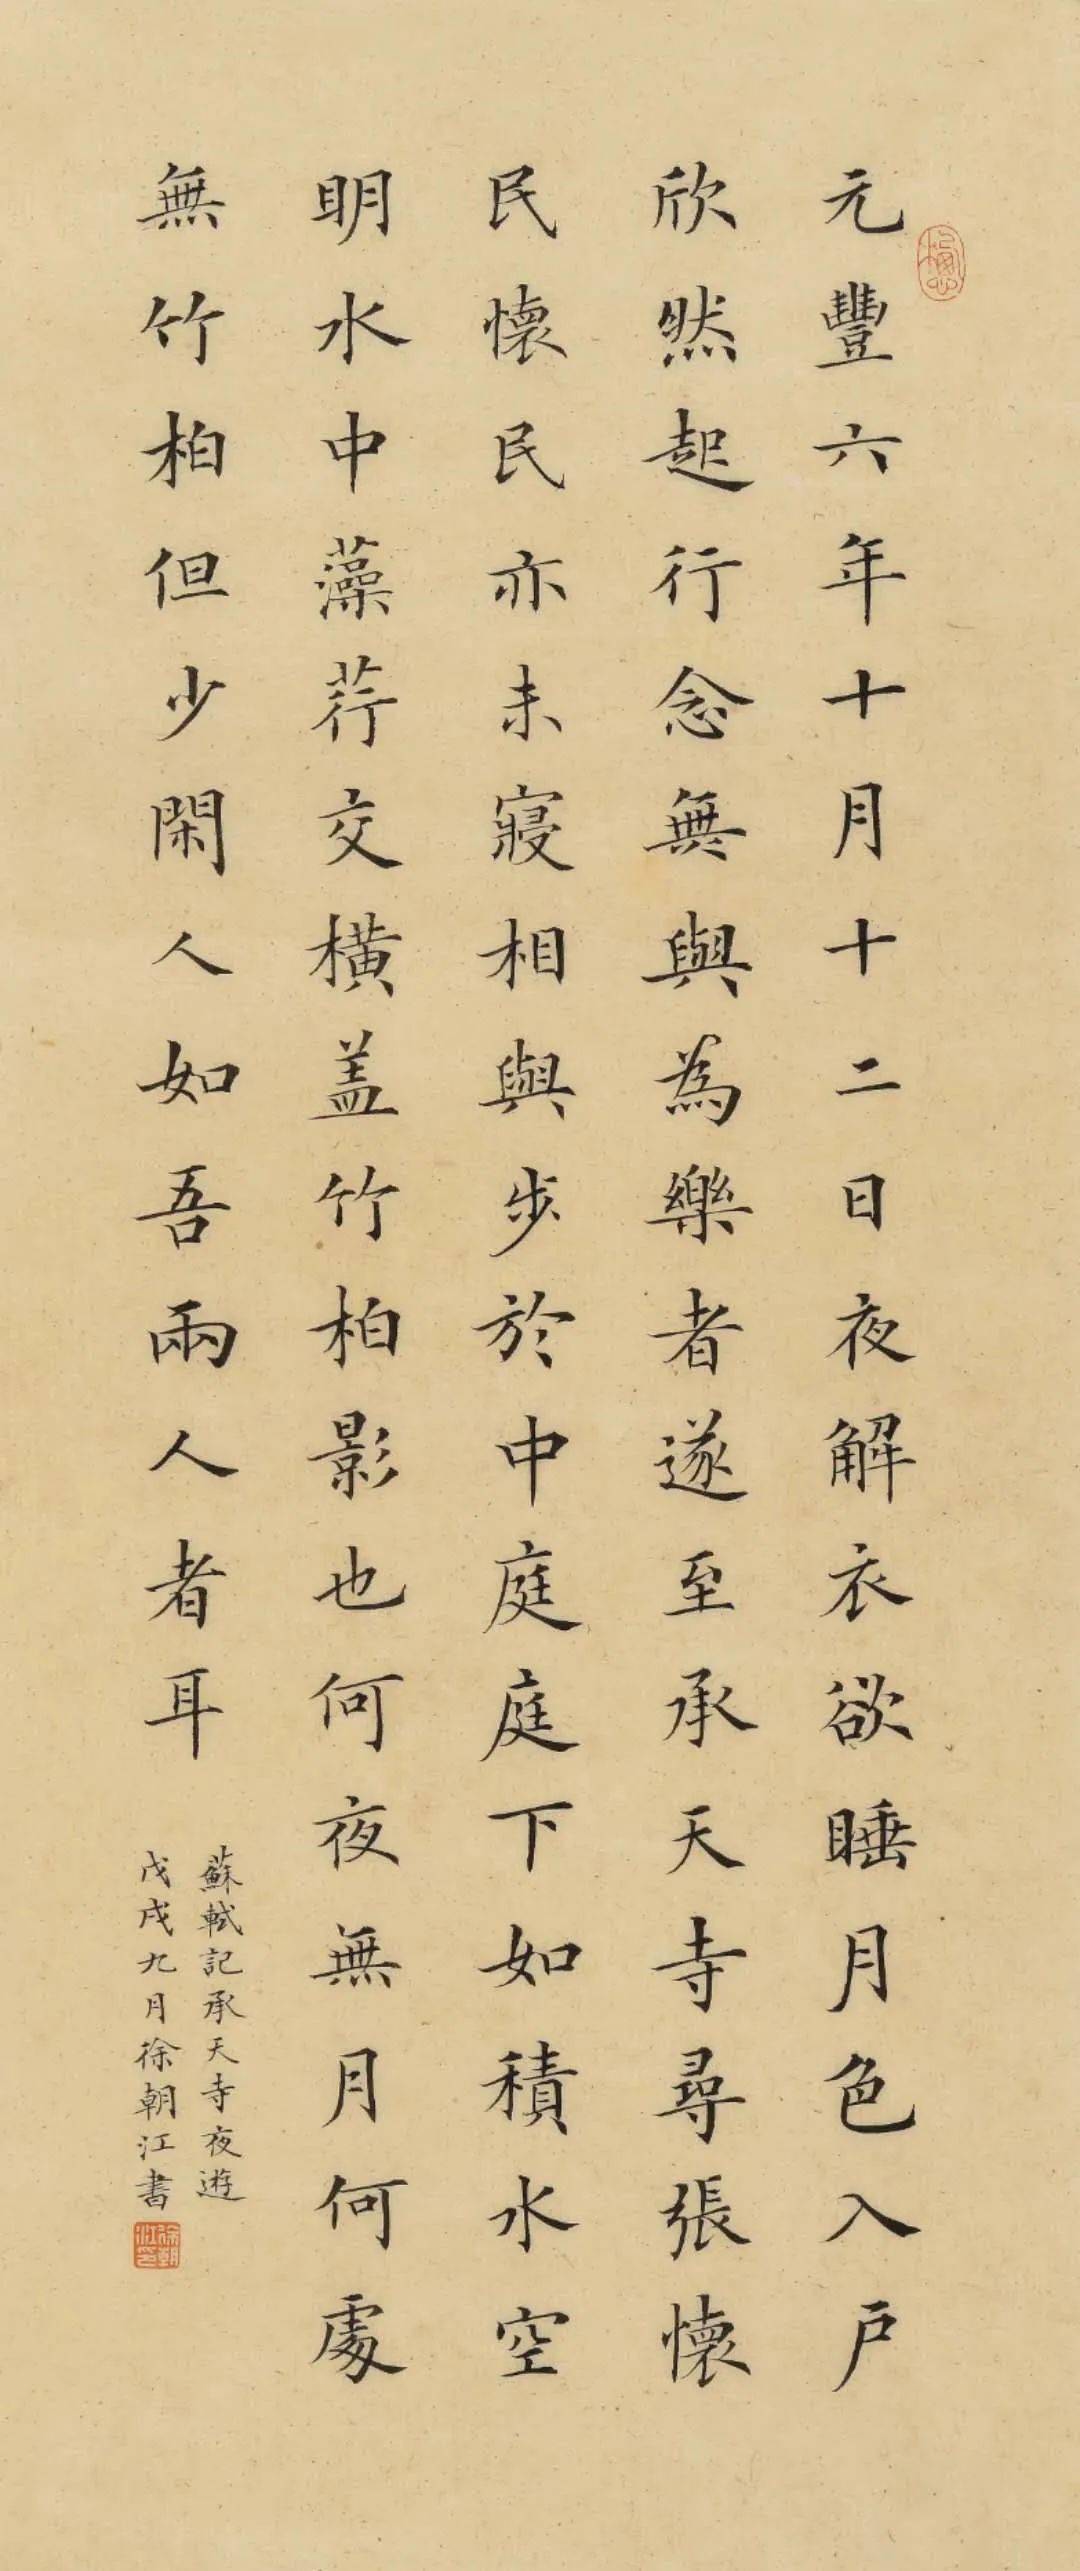 元豐六年十月十二日夜解衣欲睡月色入戶
欣然起行念無與為樂者遂至承天寺尋張懷
民懷民亦未寢相與步於中庭庭下如積水空
明水中藻荇交橫盖竹柏影也何夜無月何處
無竹柏但少閑人如吾兩人者耳
蘇軾記承天寺夜遊
戊戌九月徐朝江書
徐朝江印